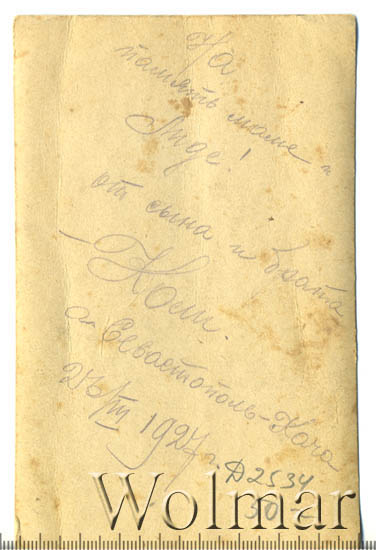 На
память маме и
Лиде!
от сына и брата
– Коли.
Севастополь-Кача
26/III 1927 г.
Д2534
50-
Wolmar